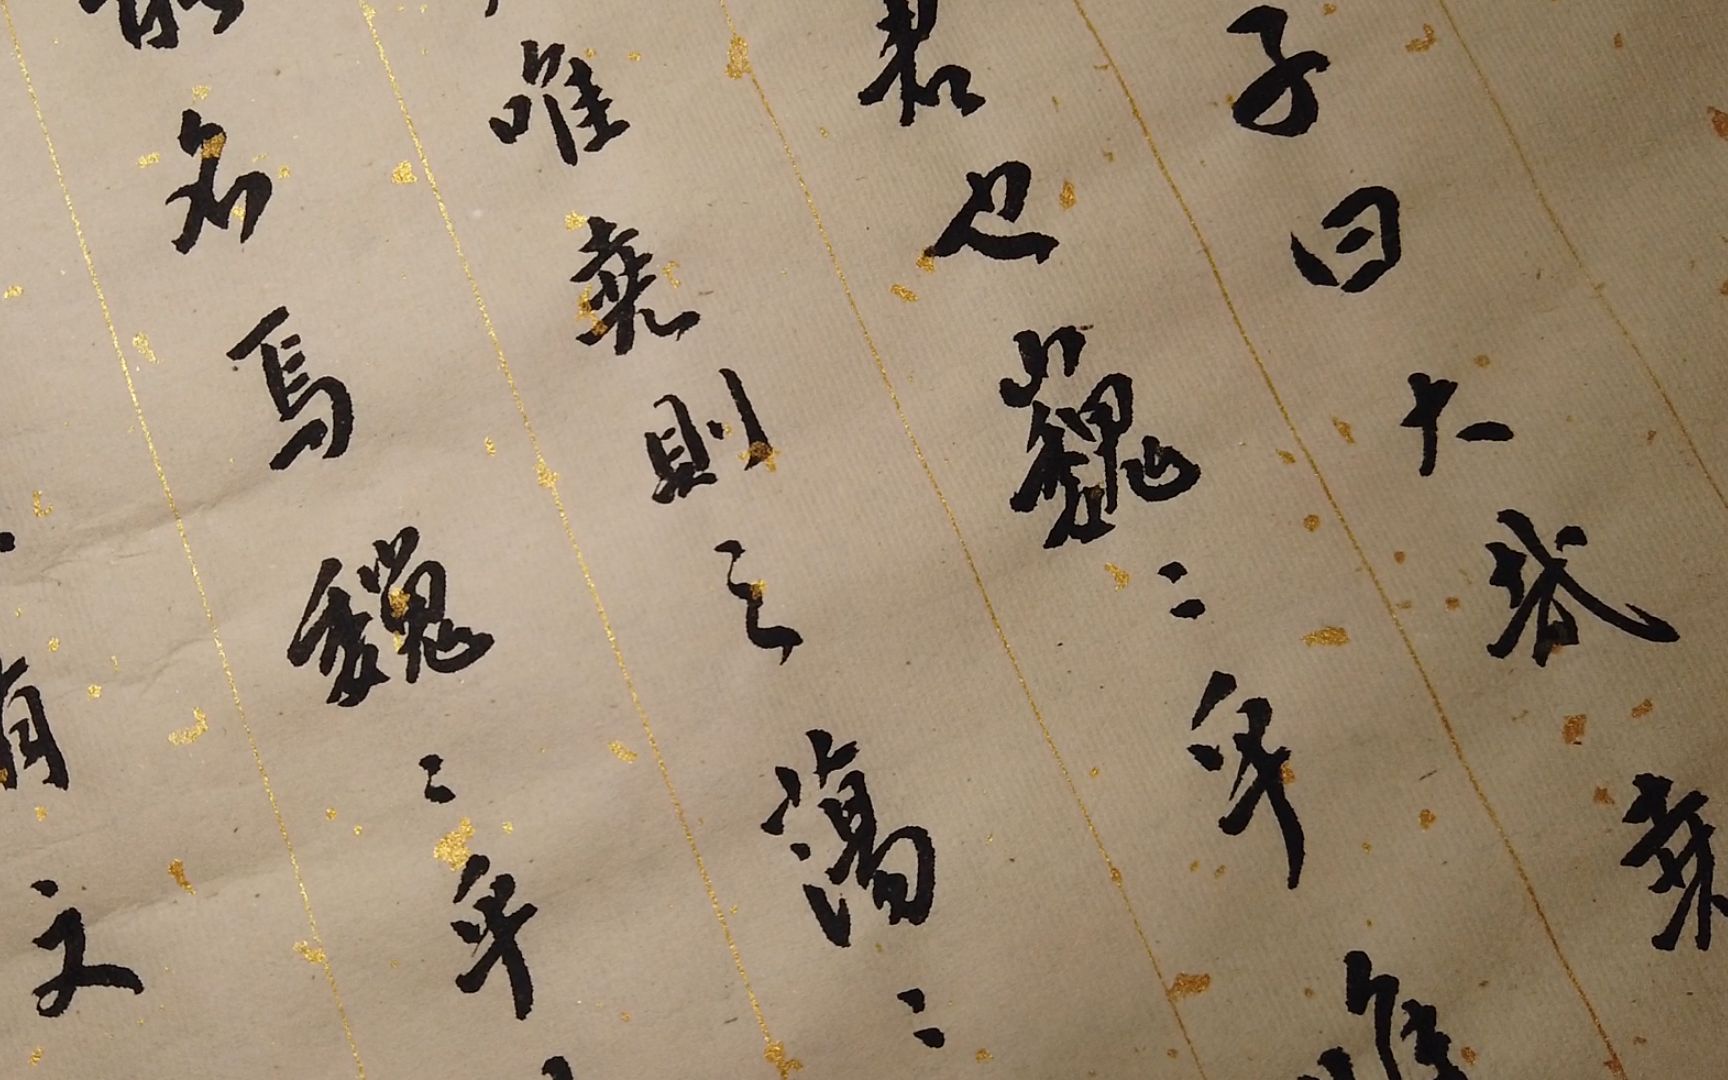 子曰大哉堯
君也巍々乎唯
唯堯則之蕩々
能名焉巍々乎
有文